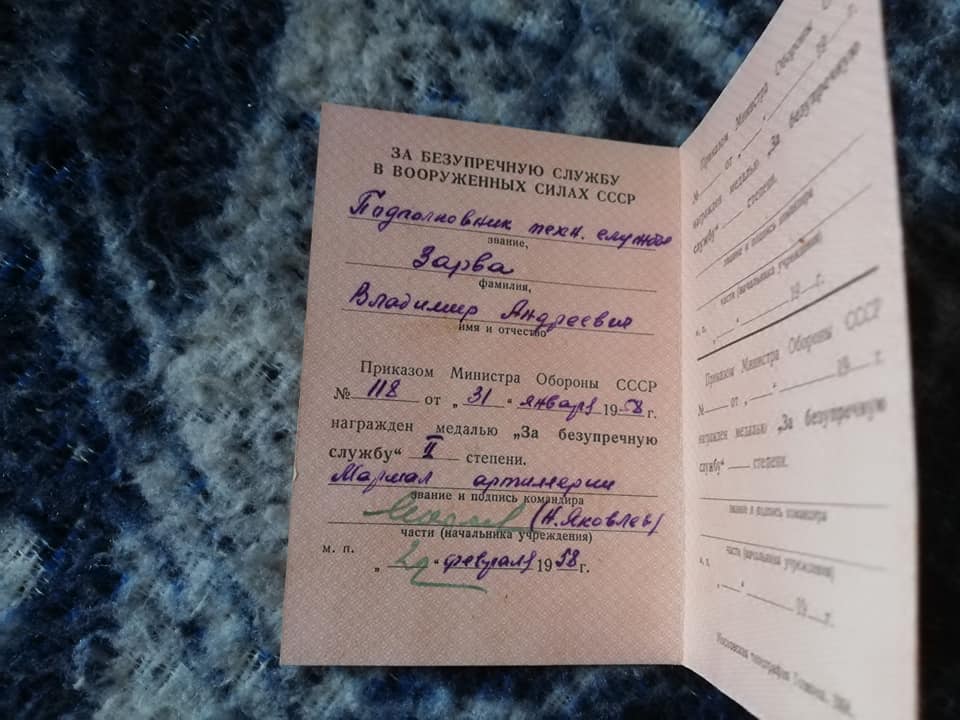 ЗА БЕЗУПРЕЧНУЮ СЛУЖБУ
В ВООРУЖЕННЫХ СИЛАХ СССР
Подполковник техн. службы
звание,
Зарва
фамилия,
Владимир Андреевич
имя и отчество
Приказом Министра Обороны СССР
№ 118 от „31“ января 1958 г.
награжден медалью „За безупречную
службу“ II степени.
Маршал артиллерии
звание и подпись командира
(Н. Яковлев)
части (начальника учреждения)
м. п.
„ “ февраля 1958 г.
Приказом Министра Обороны С
№ от „ “ 19 г.
награжден медалью „За безупречную
службу“ степени.
звание и подпись командира
части (начальника учреждения)
м. п. „ “ 19 г.
Приказом Министра Обороны СССР
№ от „ “ 19 г.
награжден медалью „За безупречную
службу“ степени.
звание и подпись командира
часть (начальника учреждения)
м. п. „ “ 19 г.
Московская типография Гознака.